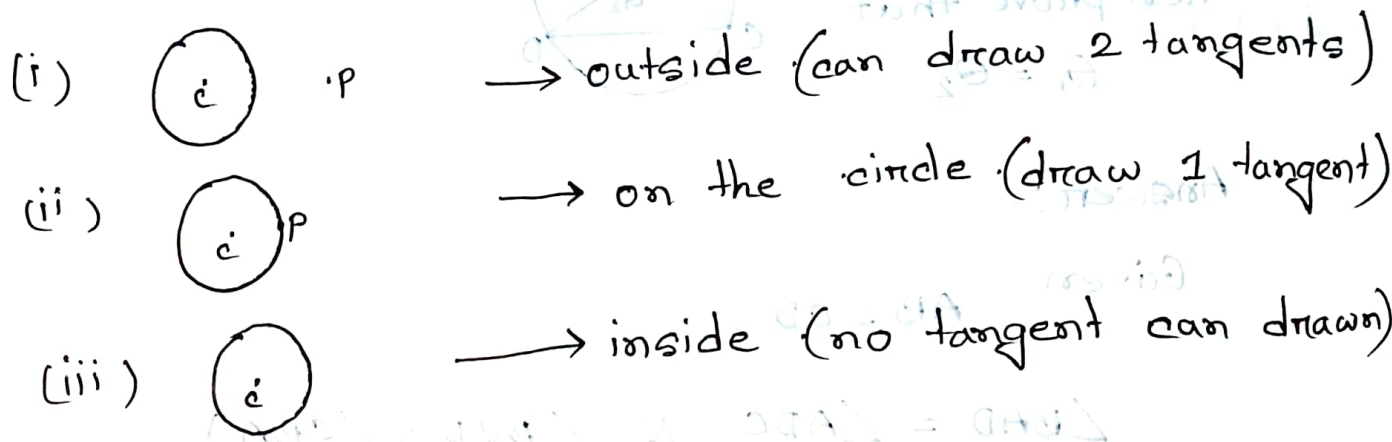 (i) c .P → outside (can draw 2 tangents)
(ii) c P → on the circle (draw 1 tangent)
(iii) c → inside (no tangent can drawn)